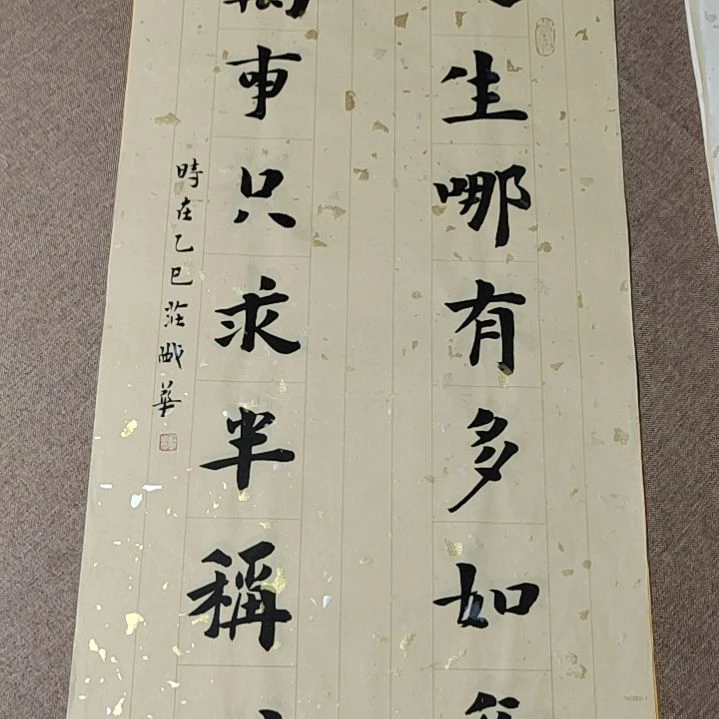 生哪有多如
萬事只求半稱
時在乙巳莊
華